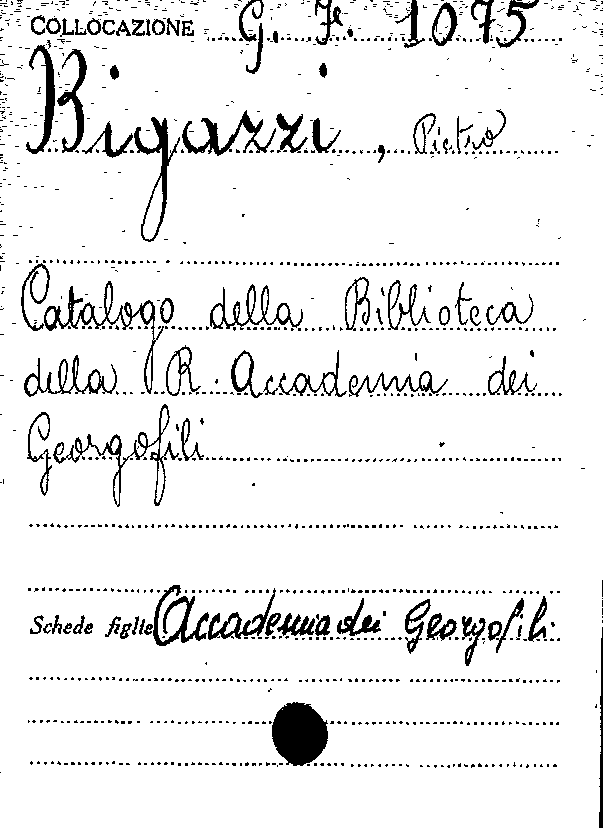 COLLOCAZIONE G. Fe. 1075
Bigazzi, Pietro
Catalogo della Biblioteca
della R. Accademia dei
Georgofili
Schede figlie Accademia dei Georgofili